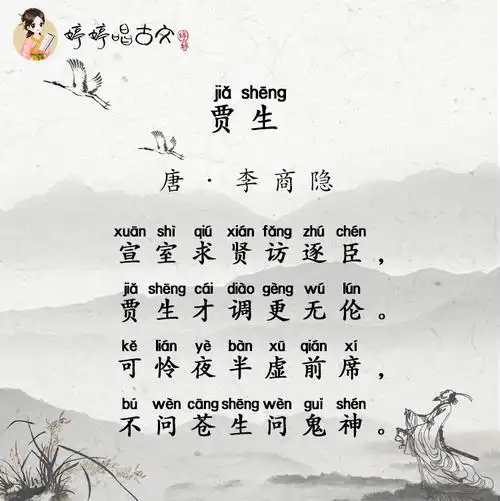 婷婷唱古文
jiǎ shēng
贾生
唐·李商隐
xuān shì qiú xián fǎng zhú chén
宣室求贤访逐臣，
jiǎ shēng cái diào gèng wú lún
贾生才调更无伦。
kě lián yè bàn xū qián xí
可怜夜半虚前席，
bú wèn cāng shēng wèn guǐ shén
不问苍生问鬼神。